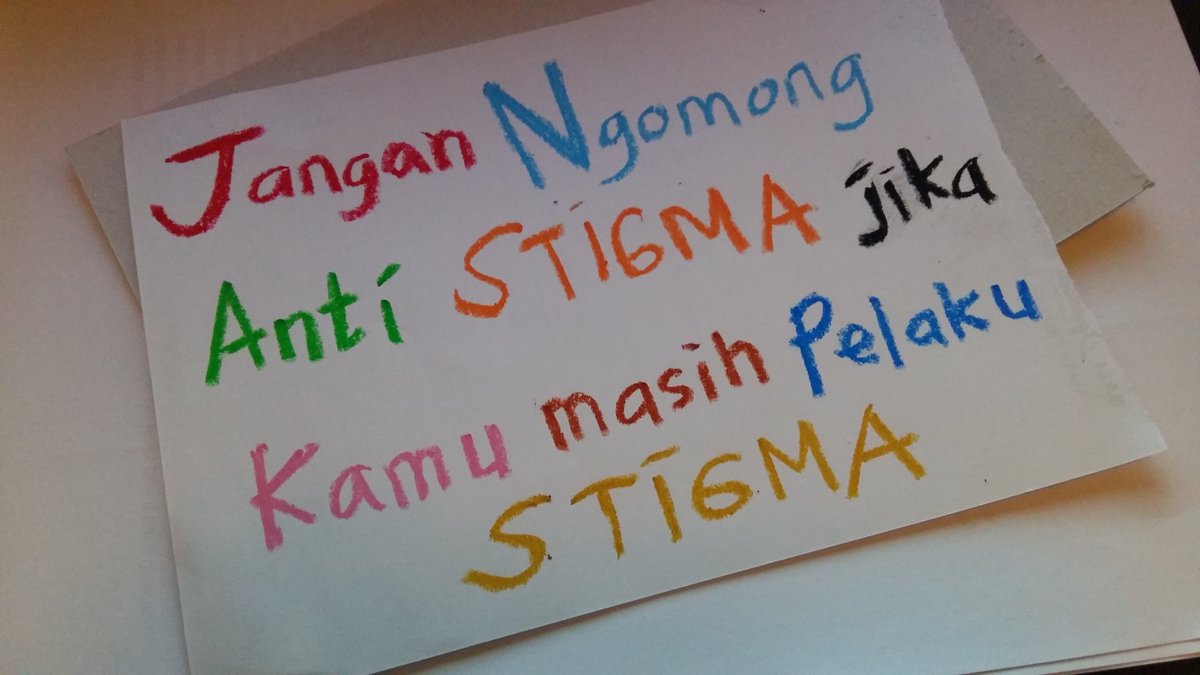 Jangan Ngomong
Anti STiGMA jika
Kamu masih Pelaku
STiGMA